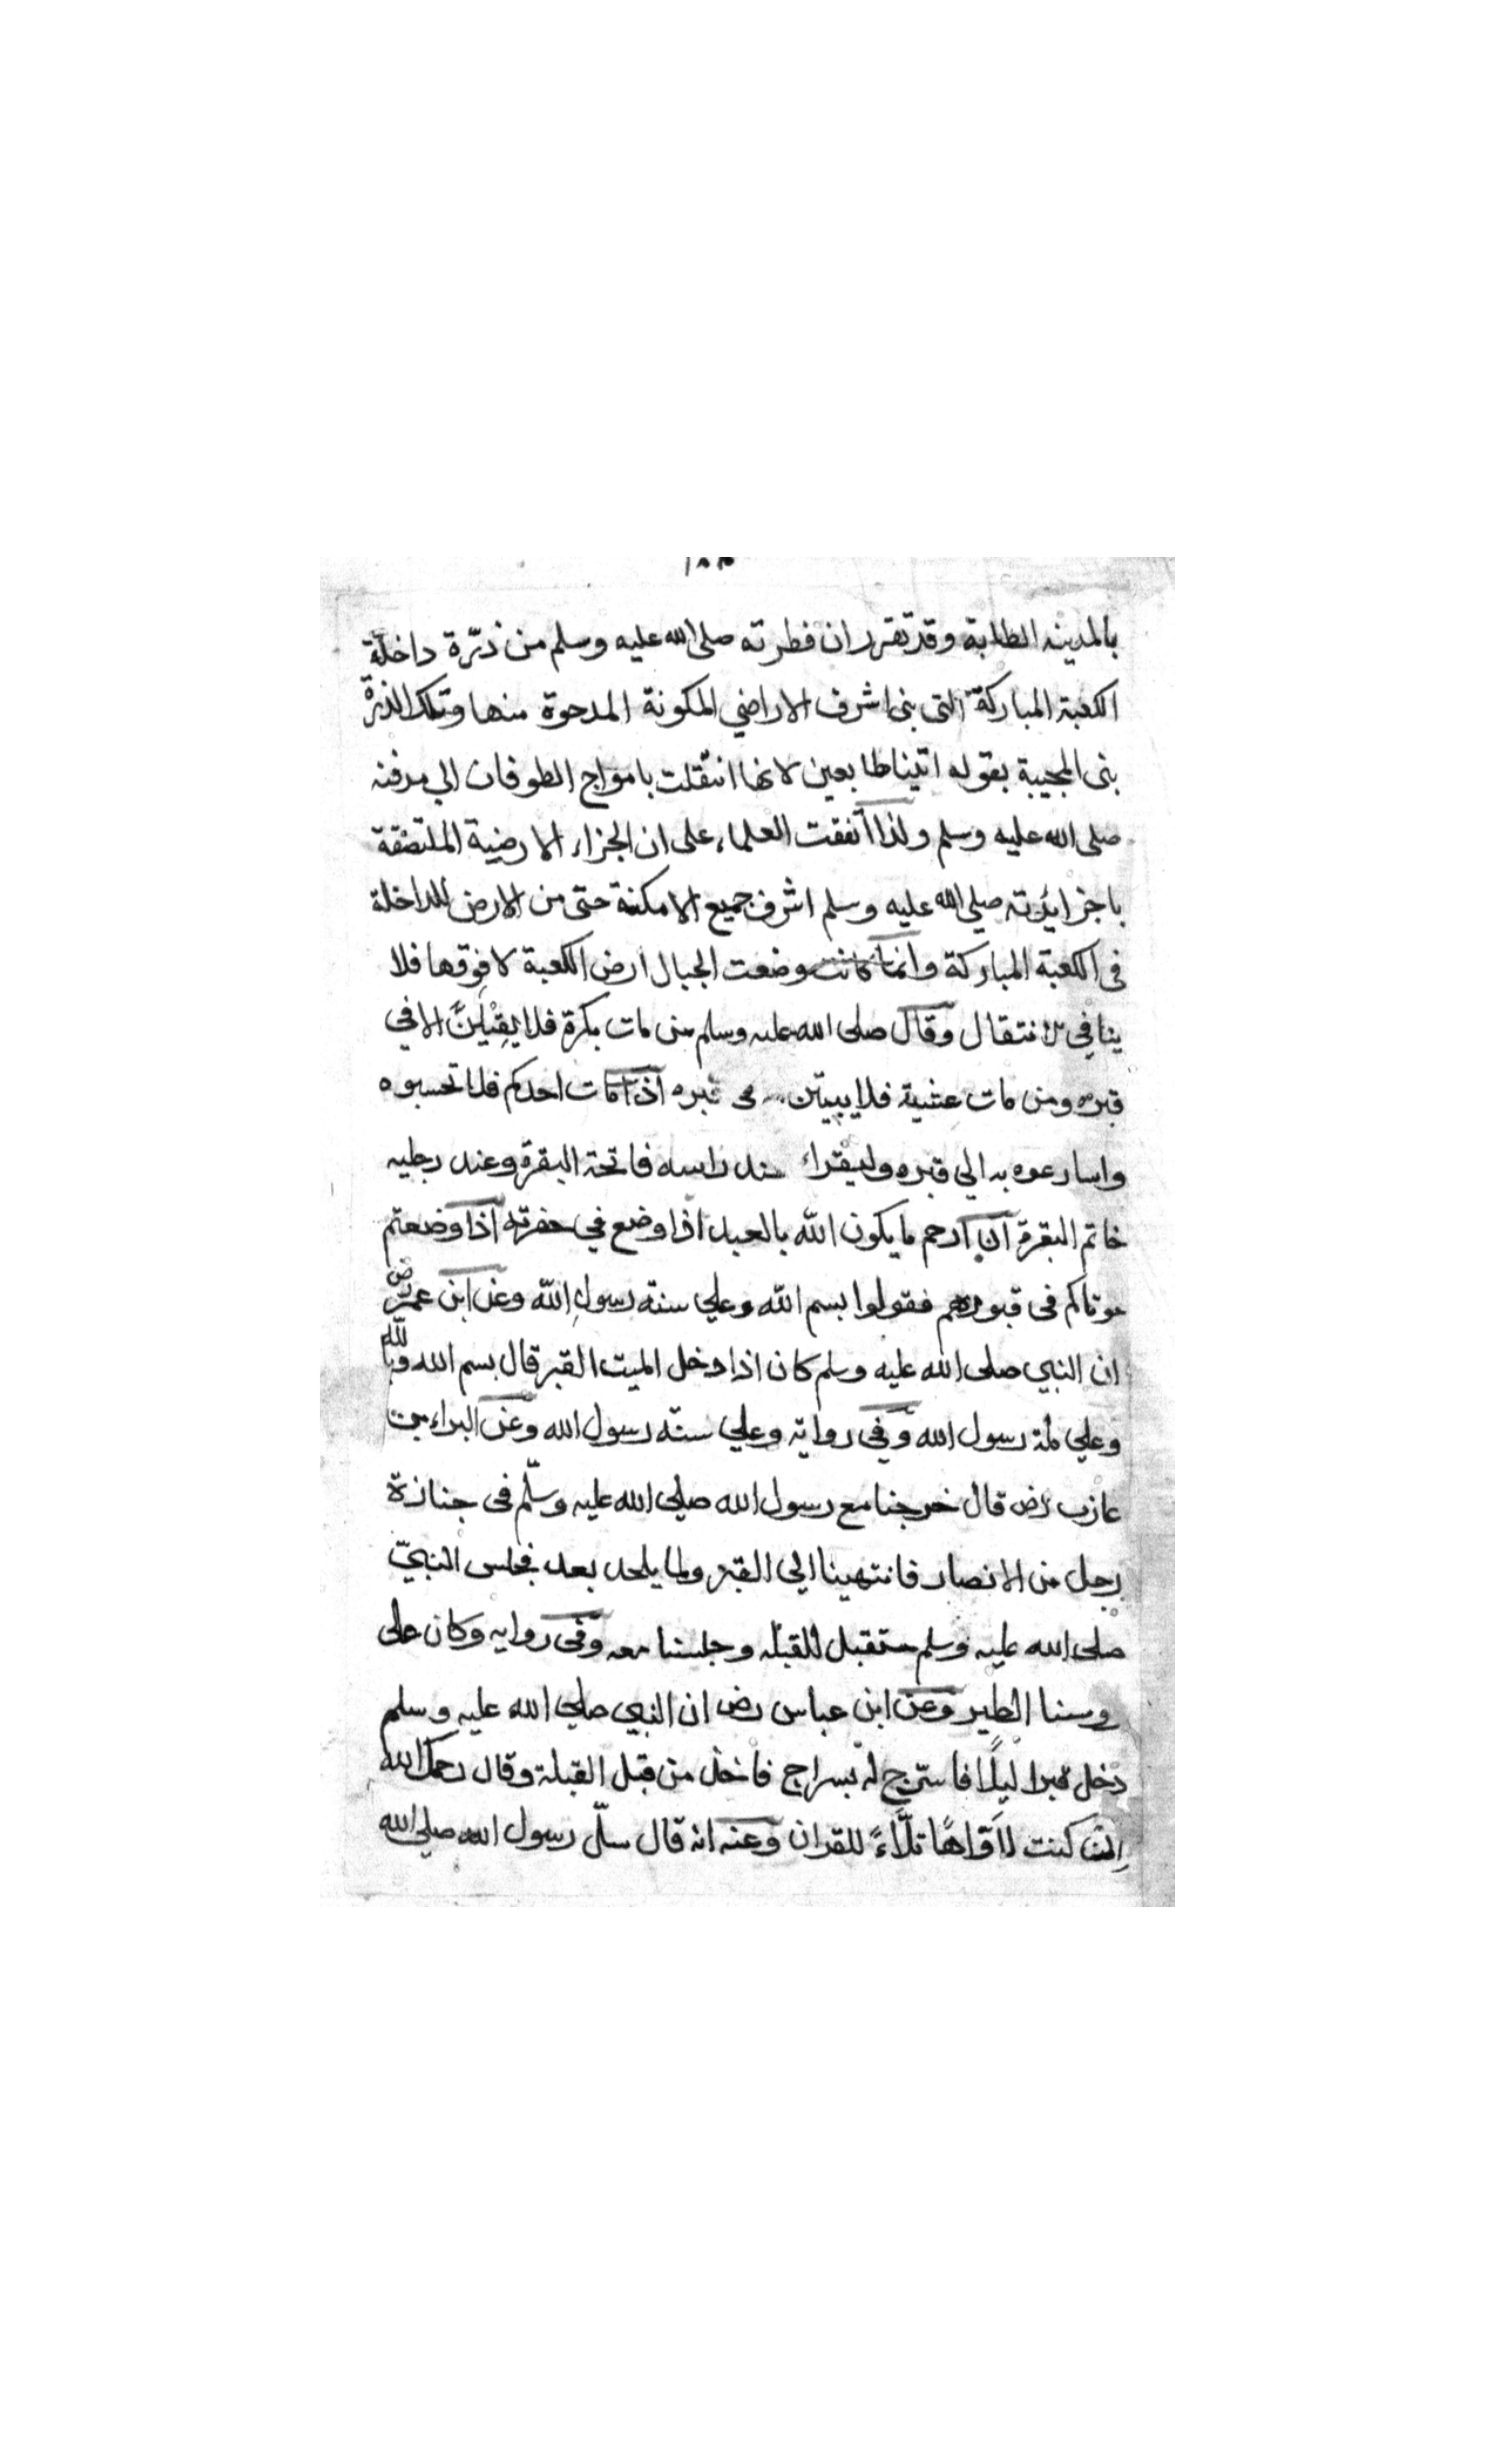 بالمدينه الطابة وقد تقرر ان فطرته صلى الله عليه وسلم من ذرّة داخلة
الكعبة المباركة التى بنى اشرف الاراضي المكونة المدحوة منها وتلك الذرّة
بنى المجيبة بقوله اتيناطايعين لانها انتقلت بامواج الطوفان الي مدفنه
صلى الله عليه وسلم ولذا أتفقت العلماء على ان الجزاء الارضية الملتصقة
باجزائه صلي الله عليه وسلم اشرف جميع الامكنة حتى من الارض للداخلة
فى الكعبة المباركة وانما وضعت الجبال ارض الكعبة لا فوقها فلا
ينافي لانتقال وقال صلى الله عليه وسلم من مات بكرة فلا يقيلنّ الا في
قبره ومن مات عشية فلا يبيتن فى قبره اذا مات احدكم فلا تحسبوه
واسارعوه به الي قبره وليقراء عند راسه فاتحة البقرة وعند رجليه
خاتم البقرة ان ارحم ما يكون الله بالعبد اذا وضع في حفرته اذا وضعتم
موتاكم فى قبورهم فقولوا بسم الله وعلي سنته رسول الله وعن ابن عمر رض
ان النبي صلى الله عليه وسلم كان اذا دخل الميت القبر قال بسم الله وبالله
وعلي ملة رسول الله وفى رواية وعلي سنّه رسول الله وعن البراء بن
عازب رض قال خرجنا مع رسول الله صلي الله عليه وسلّم فى جنازة
رجل من الانصار فانتهينا الي القبر ولما يلحد بعد فجلس النبيّ
صلى الله عليه وسلم مستقبل للقبله وجلسنا معه وفى روايه وكان على
روسنا الطير وعن ابن عباس رض ان النبي صلي الله عليه وسلم
دخل قبرا ليلًا فاسترج له بسراج فاخذ من قبل القبلة وقال رحمك الله
ان كنت لأوّاهًا تلّاءً للقران وعنه انه قال سلّ رسول الله صلى الله